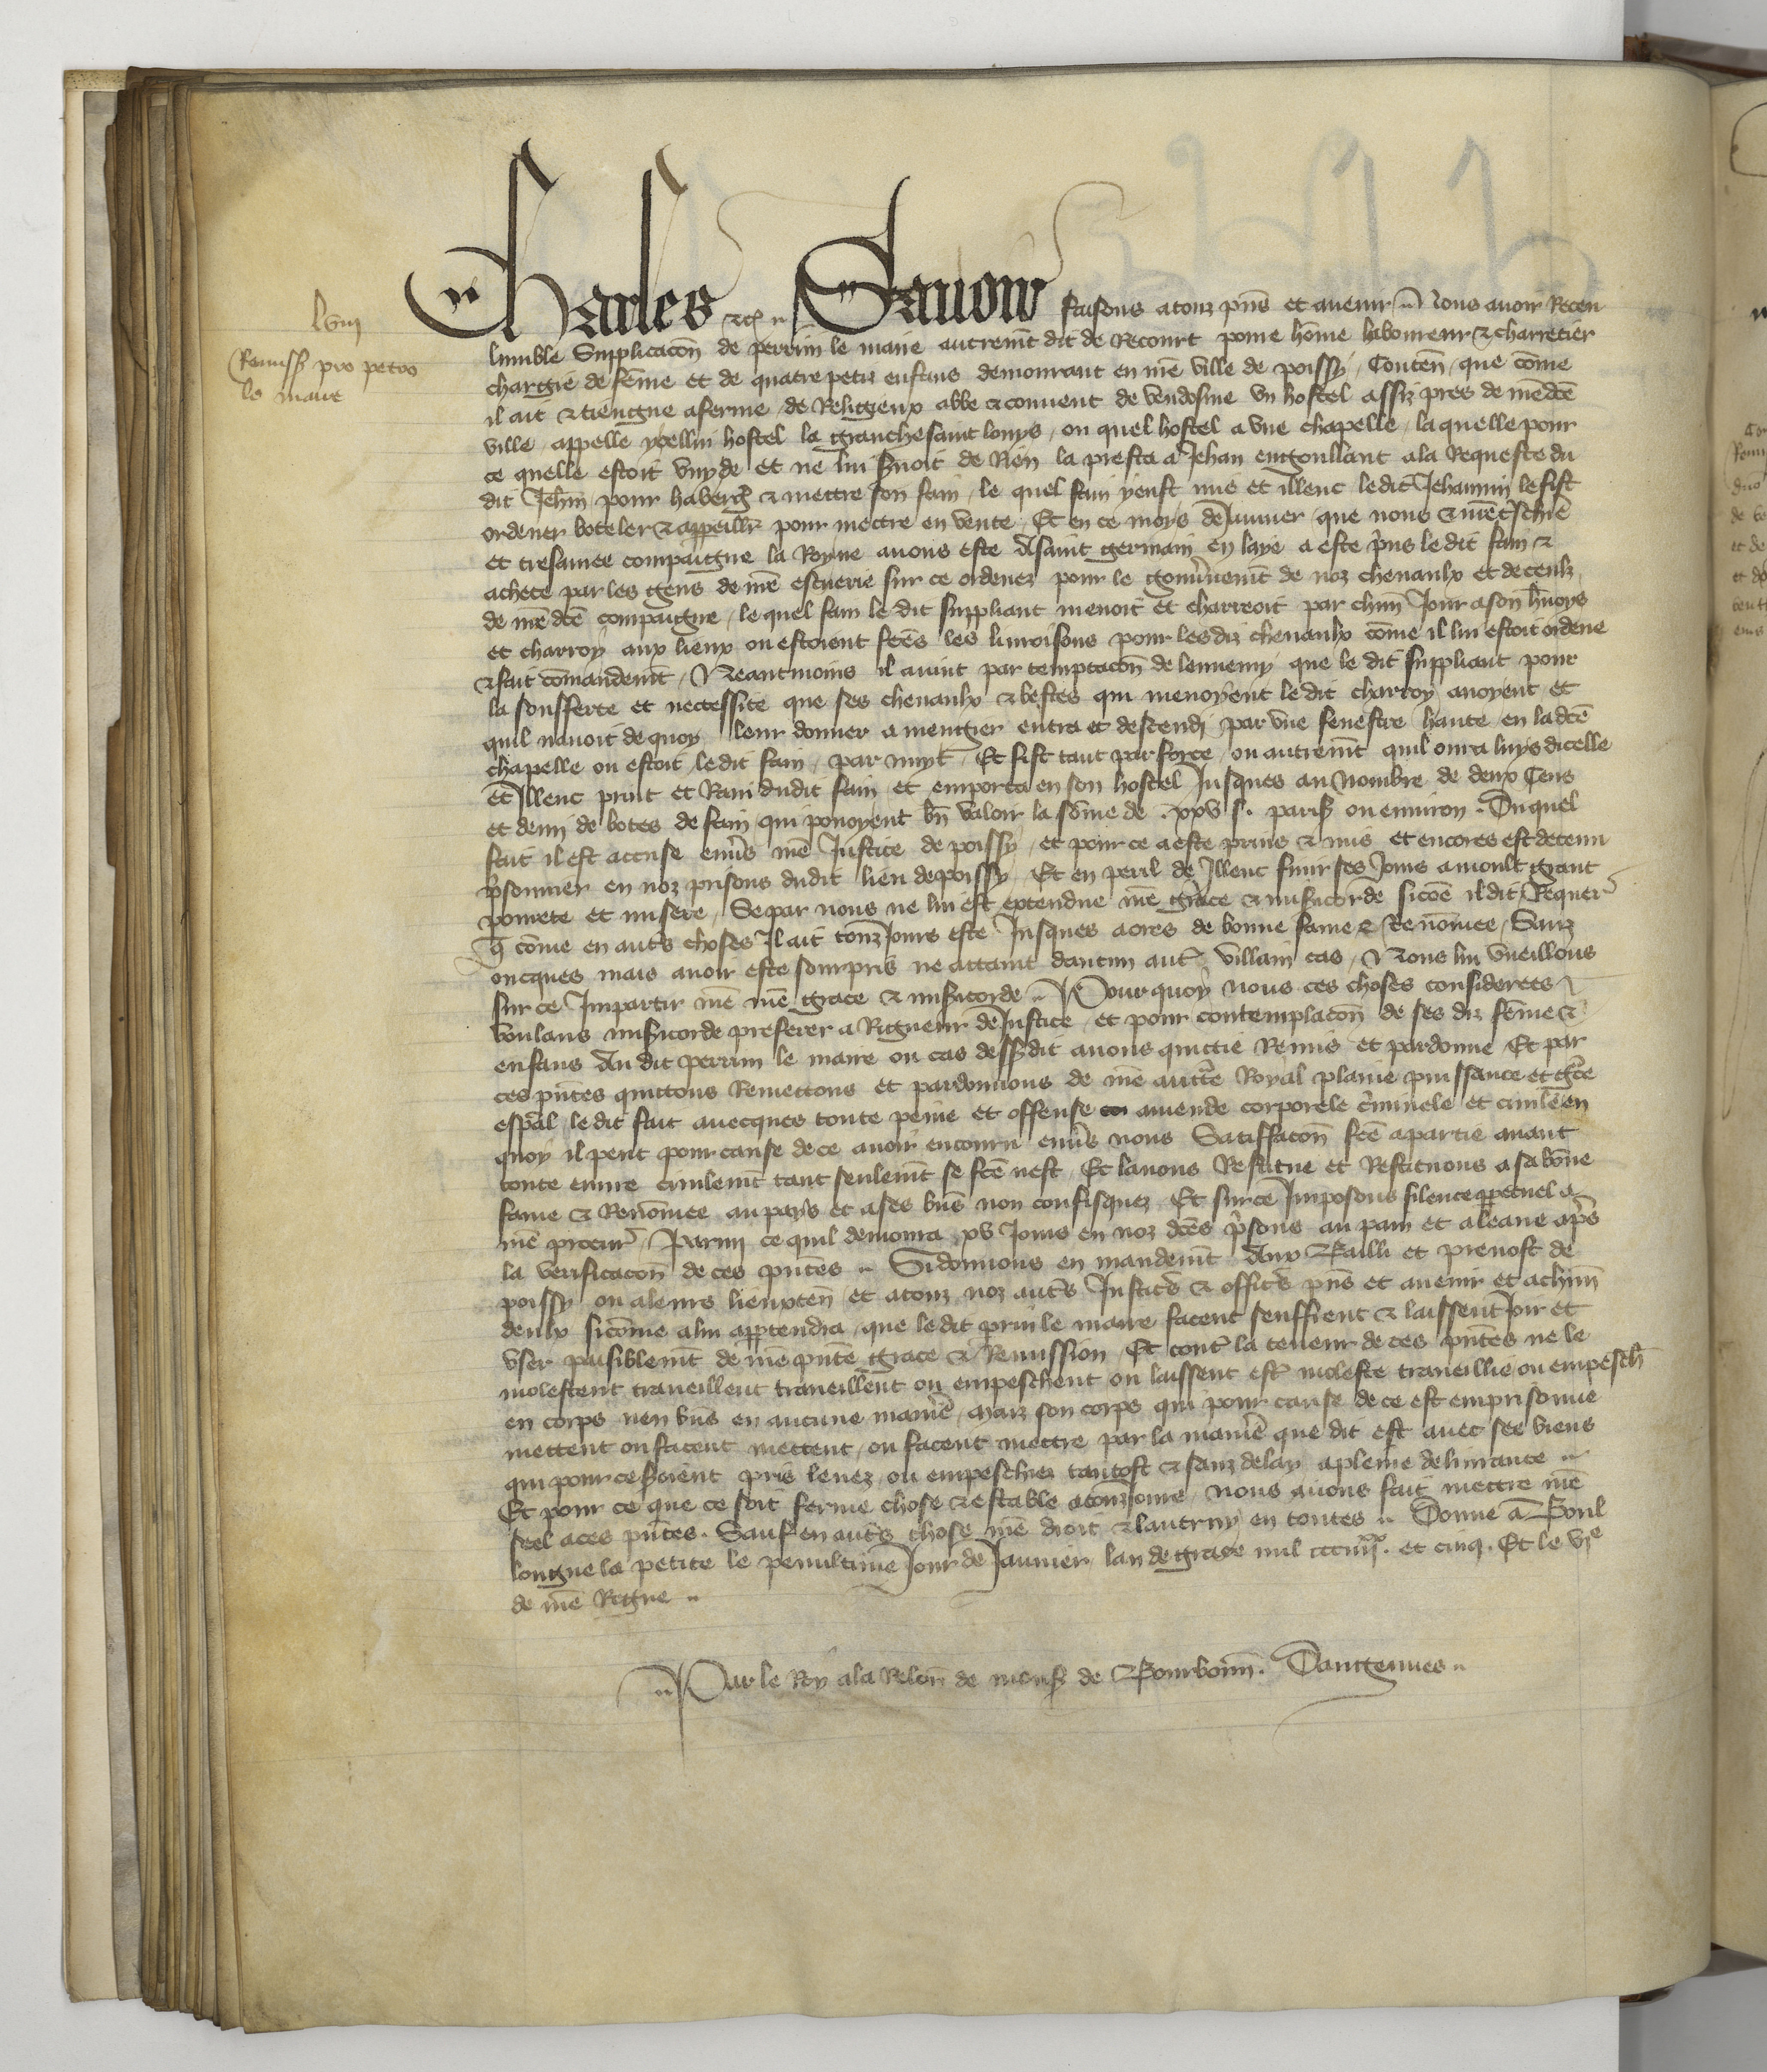 lviii
Remiss pro petro
le maire
Charles etc. Savoir faisons a touz pñs et avenir Nous avoir Receu
lumble Supplicacõn de perrin le maire autremẽt dit de Recourt povre hõme laboureur & charretier
chargie de fẽme et de quatre petiz enfans demourant en nr̃e ville de poissy / Contenñ / que cõme
il ait & tiengne a ferme de Religieux abbe & convent de vendosme un hostel assiz pres de nr̃edcẽ
ville / appelle ycellui hostel la granche saint louys / ou quel hostel a une chapelle / la quelle pour
ce quelle estoit vuyde et ne lui s̃voit de Rien la presta a Jehan engoullant a la Requeste du
dit Jehañ pour haberg̃ & mettre son fain / le quel fain y eust mis et illeuc ledit Jehannin le fist
ordener boteler & appeillr̃ pour mettre en vente / Et en ce moys de Janvier que nous & nr̃e treschiẽ
et tresamee compaigne la Royne avons este a saint germain en laye a este pr̃ns le dit fain &
achete par les gens de nr̃e escuerie sur ce ordenez pour le gouv̉nemẽt de noz chevaulx et de ceulx
de nr̃e dcẽ compaigne / le quel fain le dit suppliant menoit et charreoit par chũn Jour a son h̃noys
et charroy aux lieux ou estoient fcẽs les livroisons pour lesdiz chevaulx cõme il lui estoit ordene
& fait cõmandemẽt / Neantmoins il avint par temptacõn de lennemy que le dit suppliant pour
la soufferte et neccessite que ses chevaulx & bestes qui menoyent le dit charroy avoyent et
quil navoit de quoy leur donner a mengier entra et descendi par une fenestre haute en la dcẽ
chapelle ou estoit le dit fain / par nuyt / Et fist tant par force ou autremẽt quil ouvra luys dicelle
et Illeuc print et Ravi dudit fain et emporta en son hostel Jusques au Nombre de deux Cens
et demi de botes de fain qui povoyent bñ valoir la sõme de .xxv s. paris̃ ou environ . Du quel
fait il est accuse env̉s nr̃e Justice de poissy / et pour ce a este prins & mis et encores est detenu
pr̃sonnier en noz prisons dudit lieu de poissy / Et en peril de Illeuc finir ses Jours a moult grant
povrete et misere / Se par nous ne lui est extendue nr̃e grace & mis̃icorde sicõe il dit / Requer̃
q̃ cõme en aut̃s choses Il ait touzjours este Jusques a ores de bonne fame & Renõmee / Sanz
oncques mais avoir este sourpris ne attaint daucun aut̃ villain cas / Nous lui vueillons
sur ce Impartir nr̃e nr̃e grace & mis̃icorde Pour quoy nous ces choses considerees
voulans mis̃icorde preferer a Rigueur de Justice / et pour contemplacõn de ses diz fẽme &
enfans Au dit perrin le maire ou cas dess̃dit avons quictie Remis et pardonne Et par
ces pñtes quictons Remettons et pardonnons de nr̃e auctr̃e Royal plaine puissance et gr̃ce
esp̃al le dit fait avecques toute peine et offense et amende corporele cr̃iminele et civile en
quoy il peut pour cause de ce avoir encouru env̉s nous Satisffacõn fcẽ a partie avant
toute euvre civilemẽt tant seulemẽt se fcẽ nest / Et lavons Restitue et Restituons a sa bõne
fame & Renõmee au pays et a ses biñs non confisquez Et sur ce Imposons silence ppetuel a
nr̃e procur̃ / Parmi ce quil demourra xv Jours en noz dcẽs pr̃isons au pain et a leaue ap̃s
la verificacõn de ces pñtes Si donnons en mandemẽt Aux Bailli et prevost de
poissy ou a leurs lieuxteñ et a touz noz aut̃s Justic̃s & offic̃s pñs et avenir et a chũn
deulx sicõme a lui apptendra / que le dit perrin le maire facent seuffrent & laissent Joir et
user paisiblemẽt de nr̃e pñte grace & Remission Et cont̃ la teneur de ces pñtes ne le
molestent traveillent traveillent ou empeschent ou laissent est̃ moleste traveillie ou empesch̃
en corps nen biñs en aucune manr̃e / Maiz son corps qui pour cause de ce est emprisonne
mettent ou facent mettent / ou facent mettre par la manr̃e que dit est avec ses biens
qui pour ce s̃oient pris levez ou empeschiez tantost & sanz delay a pleine delivrance
Et pour ce que ce soit ferme chose & estable a touzjours / Nous avons fait mettre nr̃e
seel a ces pñtes . Sauf en aut̃s chose nr̃e droit & lautruy en toutes Donne a Boul
longne la petite le penultime Jour de Janvier lan de grace mil ccciiiixx. et cinq . Et le vie
de nr̃e Regne
Par le Roy a la Relon de mons̃ de Bourboñn . Dangeuues